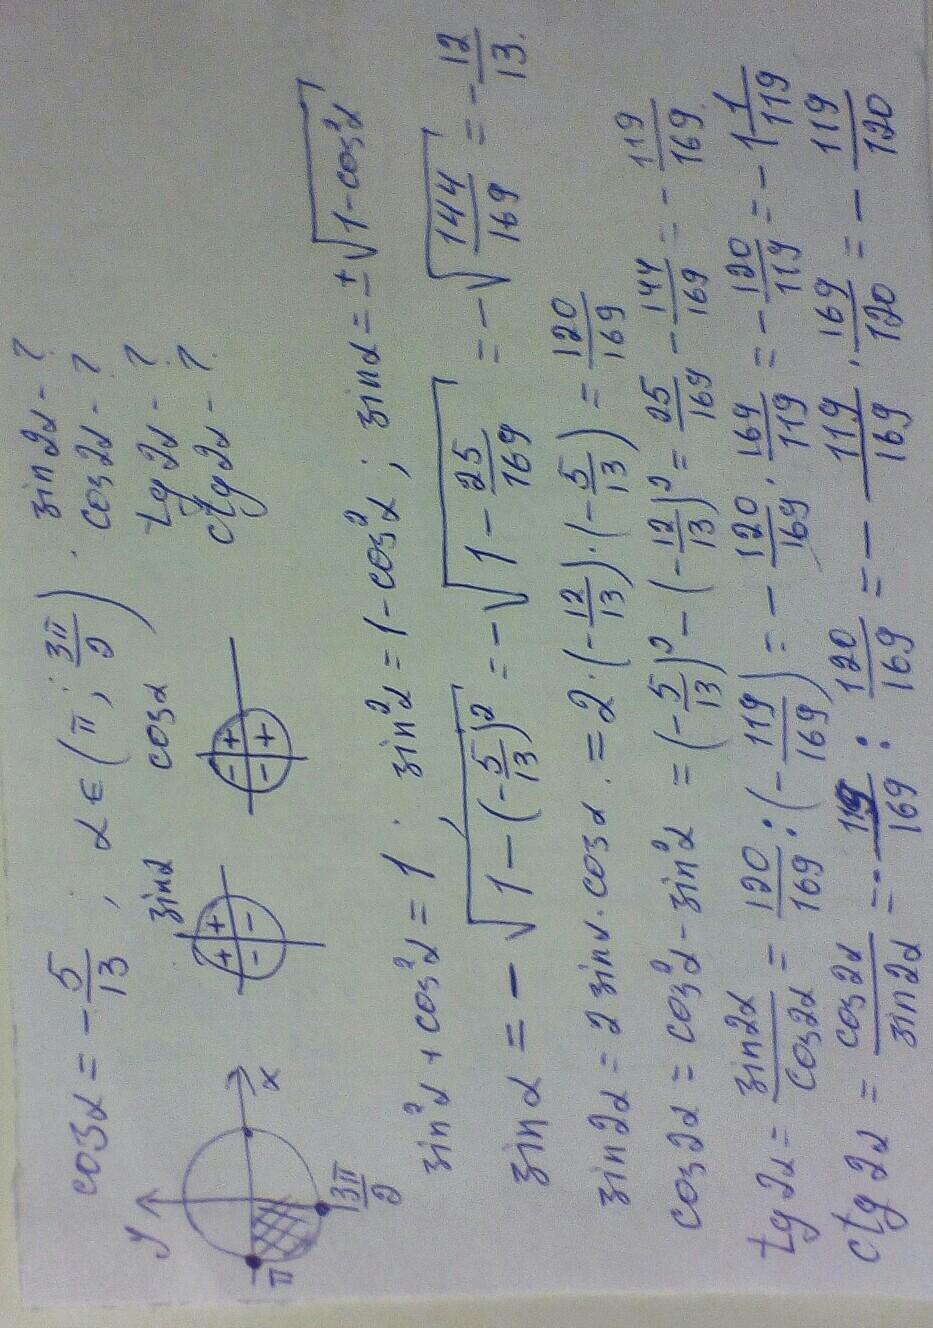 cosα = -5/13, α ∈ (π; 3π/2). sin2α - ?
cos2α - ?
tg2α - ?
ctg2α - ?
y x π 3π/2
sinα + + - -
cosα - + - +
sin²α + cos²α = 1; sin²α = 1 - cos²α; sinα = ±√(1-cos²α)
sinα = -√(1-(-5/13)²) = -√(1-25/169) = -√(144/169) = -12/13.
sin2α = 2 sinα·cosα. = 2·(-12/13)·(-5/13) = 120/169
cos2α = cos²α - sin²α = (-5/13)² - (-12/13)² = 25/169 - 144/169 = -119/169.
tg2α = sin2α/cos2α = 120/169 : (-119/169) = -120/169 · 169/119 = -120/119 = -1 1/119
ctg2α = cos2α/sin2α = -119/169 : 120/169 = -119/169 · 169/120 = -119/120